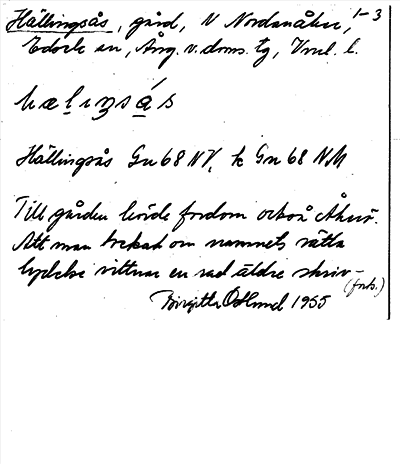 Hällingsås, gård, V Nordanåker, 1-3
Edorls sn, Ång. v. doms. tg, Vml. l.
hæḷıŋsås
Hällingsås Gn 68 NV, k Gn 68 NM
Till gården hörde fordom också Åkers.
Att man tvekat om namnets rätta
lydelse vittnar en rad äldre skriv-
(forts.)
Birgitta Ödlund 1955